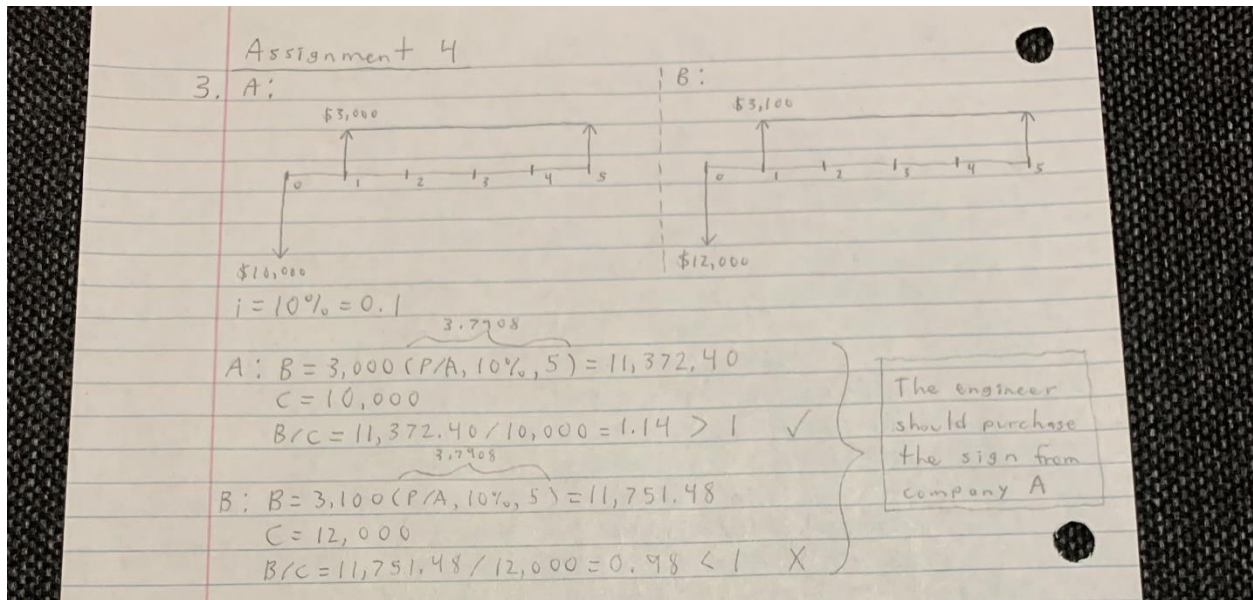 Assignment 4
3. A:
$3,000
0 1 2 3 4 5
$10,000
B:
$3,100
0 1 2 3 4 5
$12,000
i = 10% = 0.1
3.7908
A: B = 3,000 (P/A, 10%, 5) = 11,372.40
C = 10,000
B/C = 11,372.40 / 10,000 = 1.14 > 1 ✓
3.7908
B: B = 3,100 (P/A, 10%, 5) = 11,751.48
C = 12,000
B/C = 11,751.48 / 12,000 = 0.98 < 1 X
The engineer
should purchase
the sign from
company A